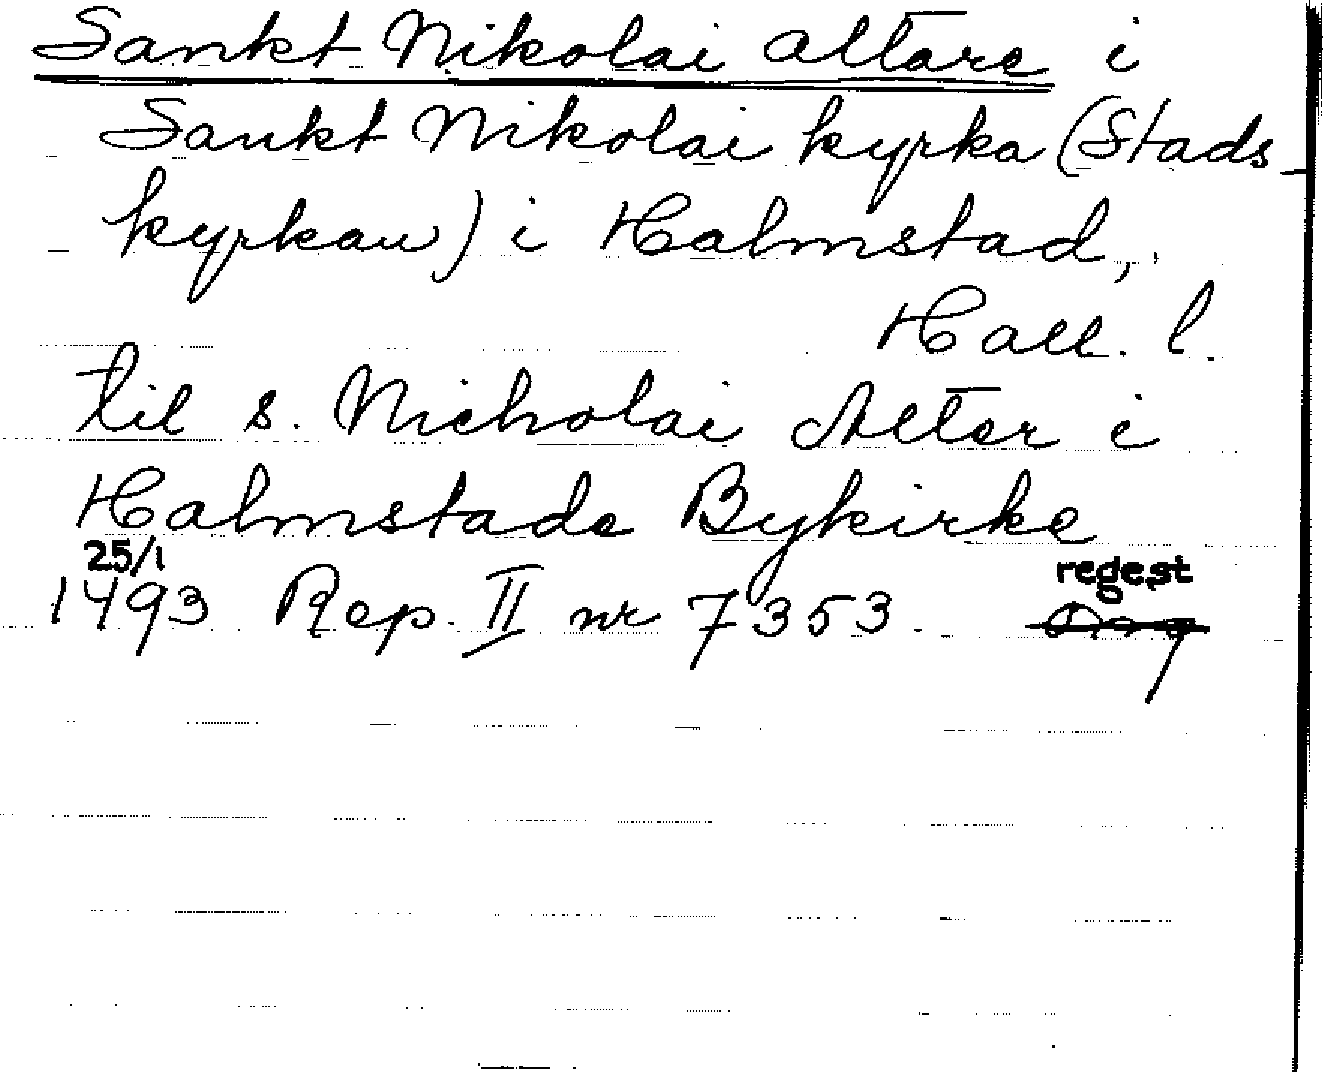 Sankt Nikolai altare i
Sankt Nikolai kyrka (Stads-
kyrkan) i Halmstad,
Hall. l.
til s. Nicholai Alter i
Halmstads Bykirke
25/1
1493 Rep. II nr 7353. regest